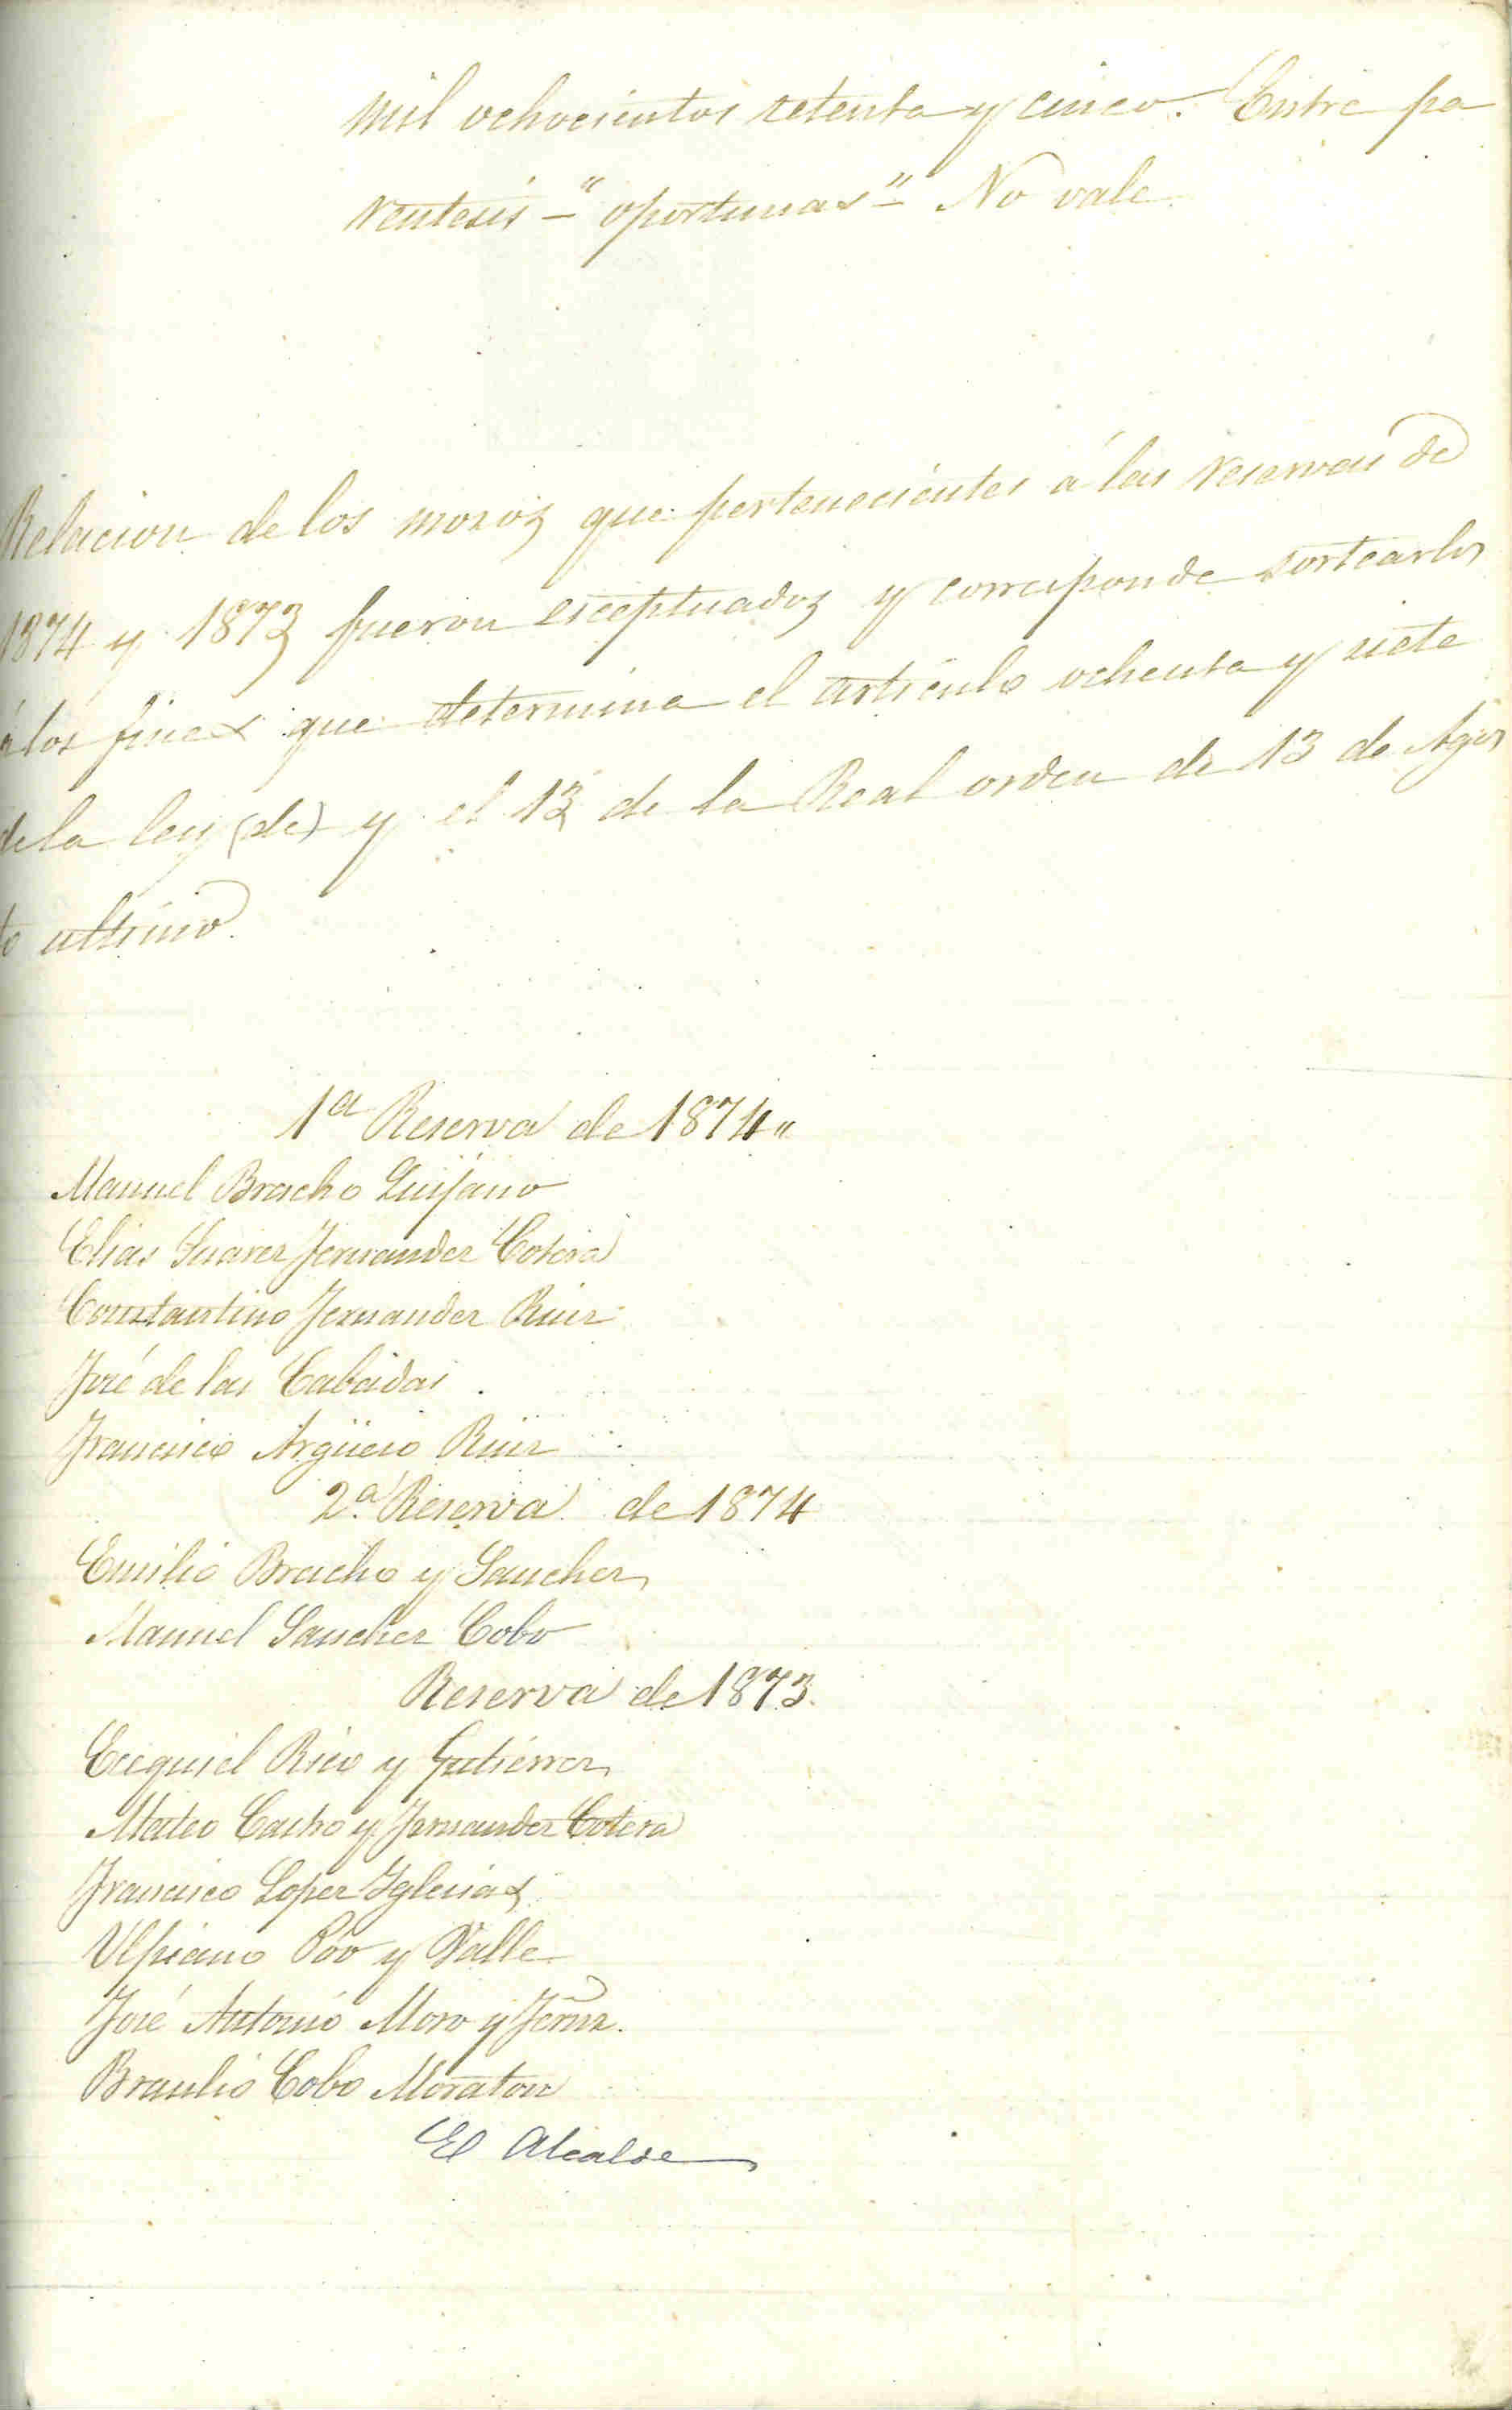 mil ochocientos setenta y cinco. Entre pa
rentesis – "oportunas" – No vale.
Relacion de los mozos que pertenecientes á las reservas de
1874 y 1873 fueron esceptuados y corresponde sortearlos
á los fines que determina el articulo ochenta y siete
de la ley (de) y el 13 de la Real orden de 13 de Agos
to ultimo.
1ª Reserva de 1874"
Manuel Bracho Quijano
Elias Suarez Fernandez Cotera
Constantino Fernandez Ruiz
José de las Cabadas
Francisco Argüeso Ruiz
2ª Reserva de 1874
Emilio Bracho y Sanchez
Manuel Sanchez Cobo
Reserva de 1873.
Ecequiel Rico y Gutiérrez
Mateo Cacho y Fernandez Cotera
Francisco Lopez Yglesias
Ulpiano Póo y Valle
José Antonio Moro y Fernz.
Braulio Cobo Moraton
El Alcalde